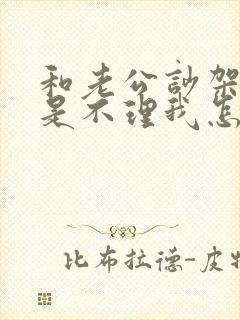 和老公訡架
是不理我怎
比布拉德-皮特